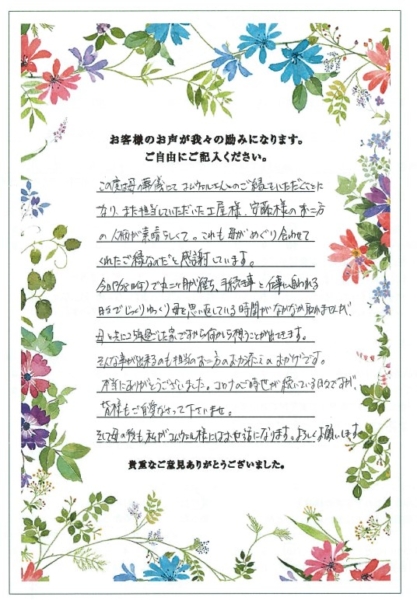 お客様のお声が我々の励みになります。
ご自由にご記入ください。
この度は母の葬儀にて コムウェルさんとのご縁をいただくことに
なり、また担当していただいた土屋様、安藤様のお二方
の人柄が素晴らしくて。これも母がめぐり合わせて
くれたご縁なのだと感謝しています。
今日で丸二ヶ月が経ち、手続き事と仕事に追われる
日々でじっくりゆっくり母を思い返している時間がなかなか取れませんが、
母と共に過ごした家でこれから偲うことが出来ます。
そんな事が出来るのも担当のお二方のお力添えのおかげです。
本当にありがとうございました。コロナのご時世が続いている日々ですが、
皆様もご自愛なさって下さいませ。
そして母の後も私がコムウェル様にはお世話になります。よろしくお願いします
貴重なご意見ありがとうございました。